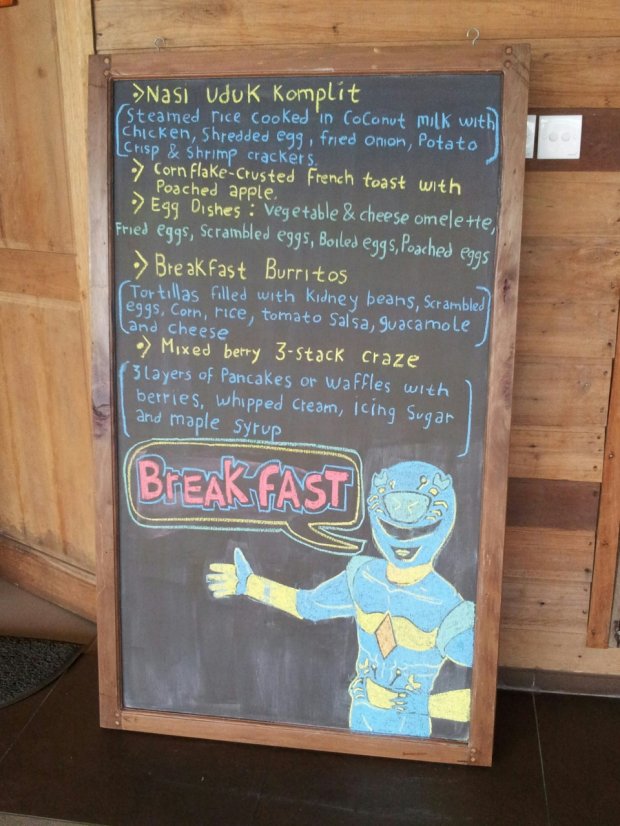 Nasi Uduk Komplit
[Steamed rice cooked in Coconut milk with
chicken, Shredded egg, fried onion, Potato
Crisp & Shrimp crackers.]
Cornflake-Crusted French toast with
Poached apple.
Egg Dishes : Vegetable & cheese omelette,
Fried eggs, Scrambled eggs, Boiled eggs, Poached eggs
Breakfast Burritos
[Tortillas filled with Kidney beans, Scrambled
eggs, Corn, rice, tomato Salsa, guacamole
and cheese]
Mixed berry 3-stack craze
[3 layers of Pancakes or Waffles with
berries, whipped cream, icing Sugar
and maple syrup]
BreakFAST